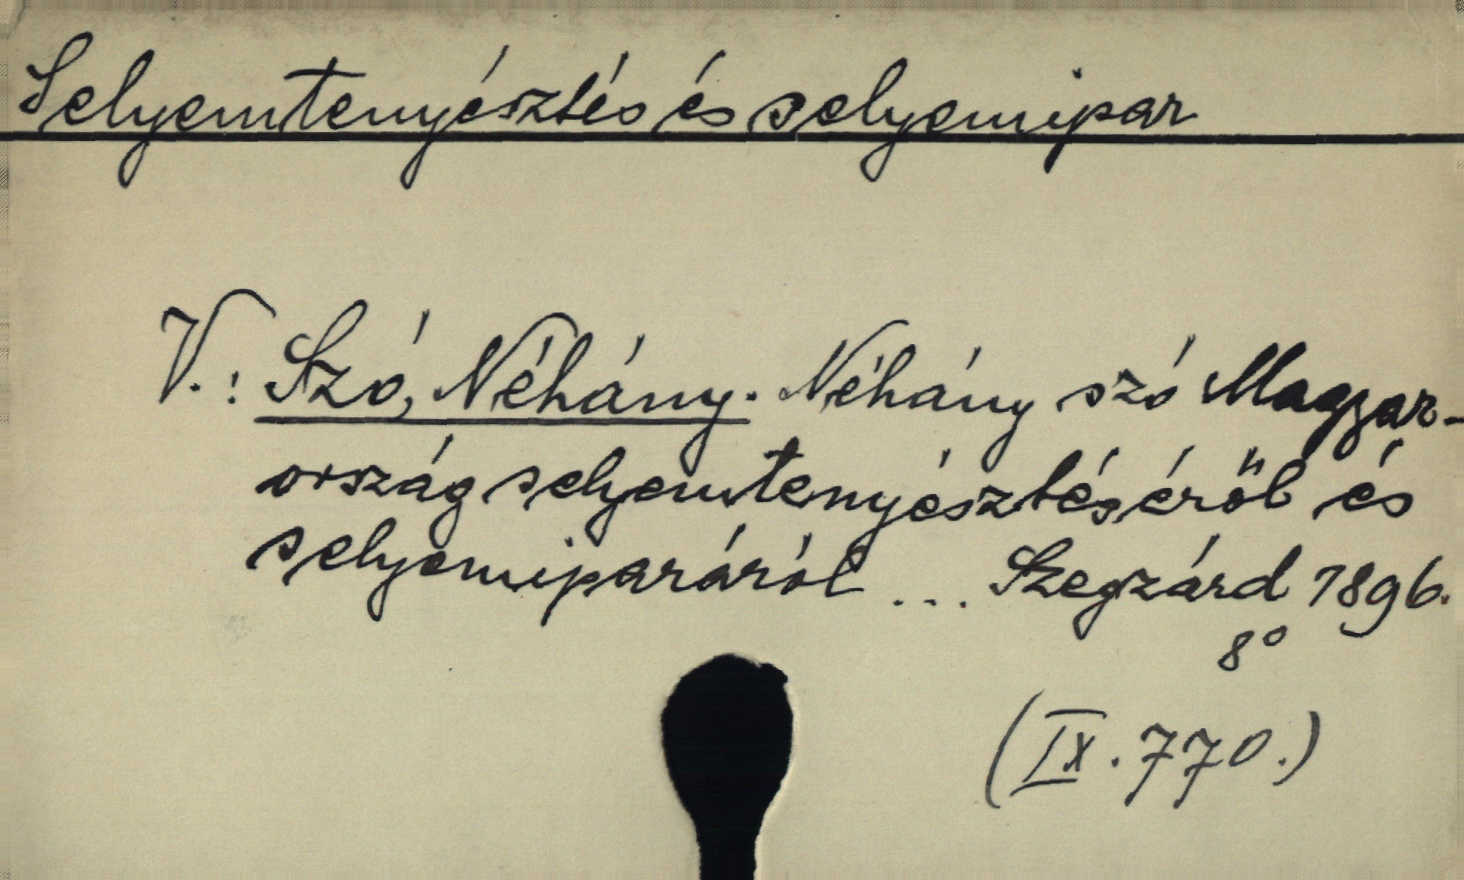 Selyemtenyésztés és selyemipar
V.: Szó, Néhány. Néhány szó Magyar-
ország selyemtenyésztéséről és
selyemiparáról ... Szegzárd 1896.
8°
(IX. 770.)